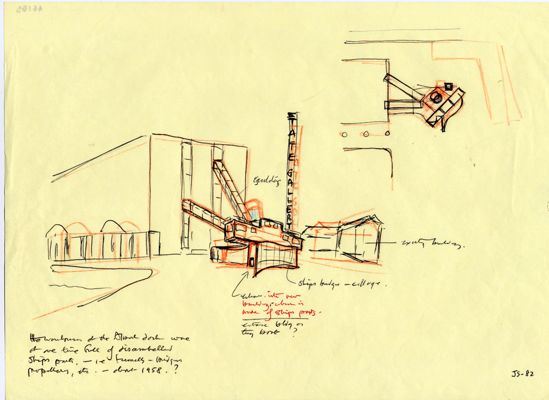 TATE GALLERY
existing building.
ships bridge - collage.
into new
building which is
made of ships parts.
entrance bldg or
tug boat ?
The warehouses at the Albert dock were
at one time full of disassembled
ships parts. - i.e funnels - bridges
propellers, etc. - about 1958. ?
JS-82